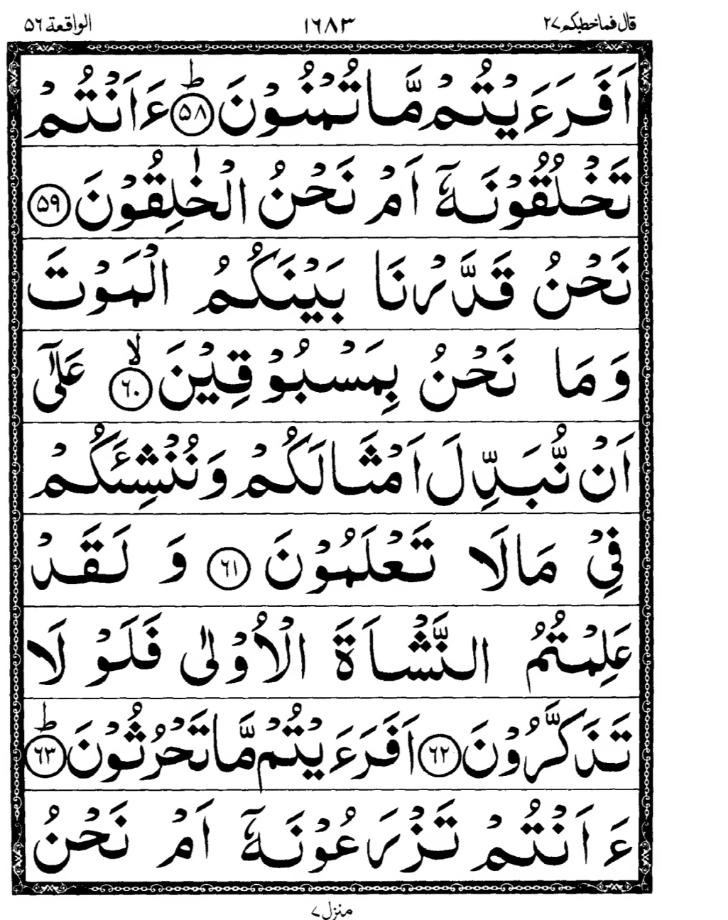 قال فماخطبكم ٢٧ ١٦٨٣ الواقعة ٥٦
اَفَرَءَيْتُمْ مَّا تُمْنُوْنَ ؕ﴿۵۸﴾ ءَاَنْتُمْ
تَخْلُقُوْنَهٗۤ اَمْ نَحْنُ الْخٰلِقُوْنَ ﴿۵۹﴾
نَحْنُ قَدَّرْنَا بَيْنَكُمُ الْمَوْتَ
وَمَا نَحْنُ بِمَسْبُوْقِيْنَ ۙ﴿۶۰﴾ عَلٰۤى
اَنْ نُّبَدِّلَ اَمْثَالَكُمْ وَنُنْشِئَكُمْ
فِيْ مَا لَا تَعْلَمُوْنَ ﴿۶۱﴾ وَلَقَدْ
عَلِمْتُمُ النَّشْاَةَ الْاُوْلٰى فَلَوْ لَا
تَذَكَّرُوْنَ ﴿۶۲﴾ اَفَرَءَيْتُمْ مَّا تَحْرُثُوْنَ ؕ﴿۶۳﴾
ءَاَنْتُمْ تَزْرَعُوْنَهٗۤ اَمْ نَحْنُ
منزل ٧